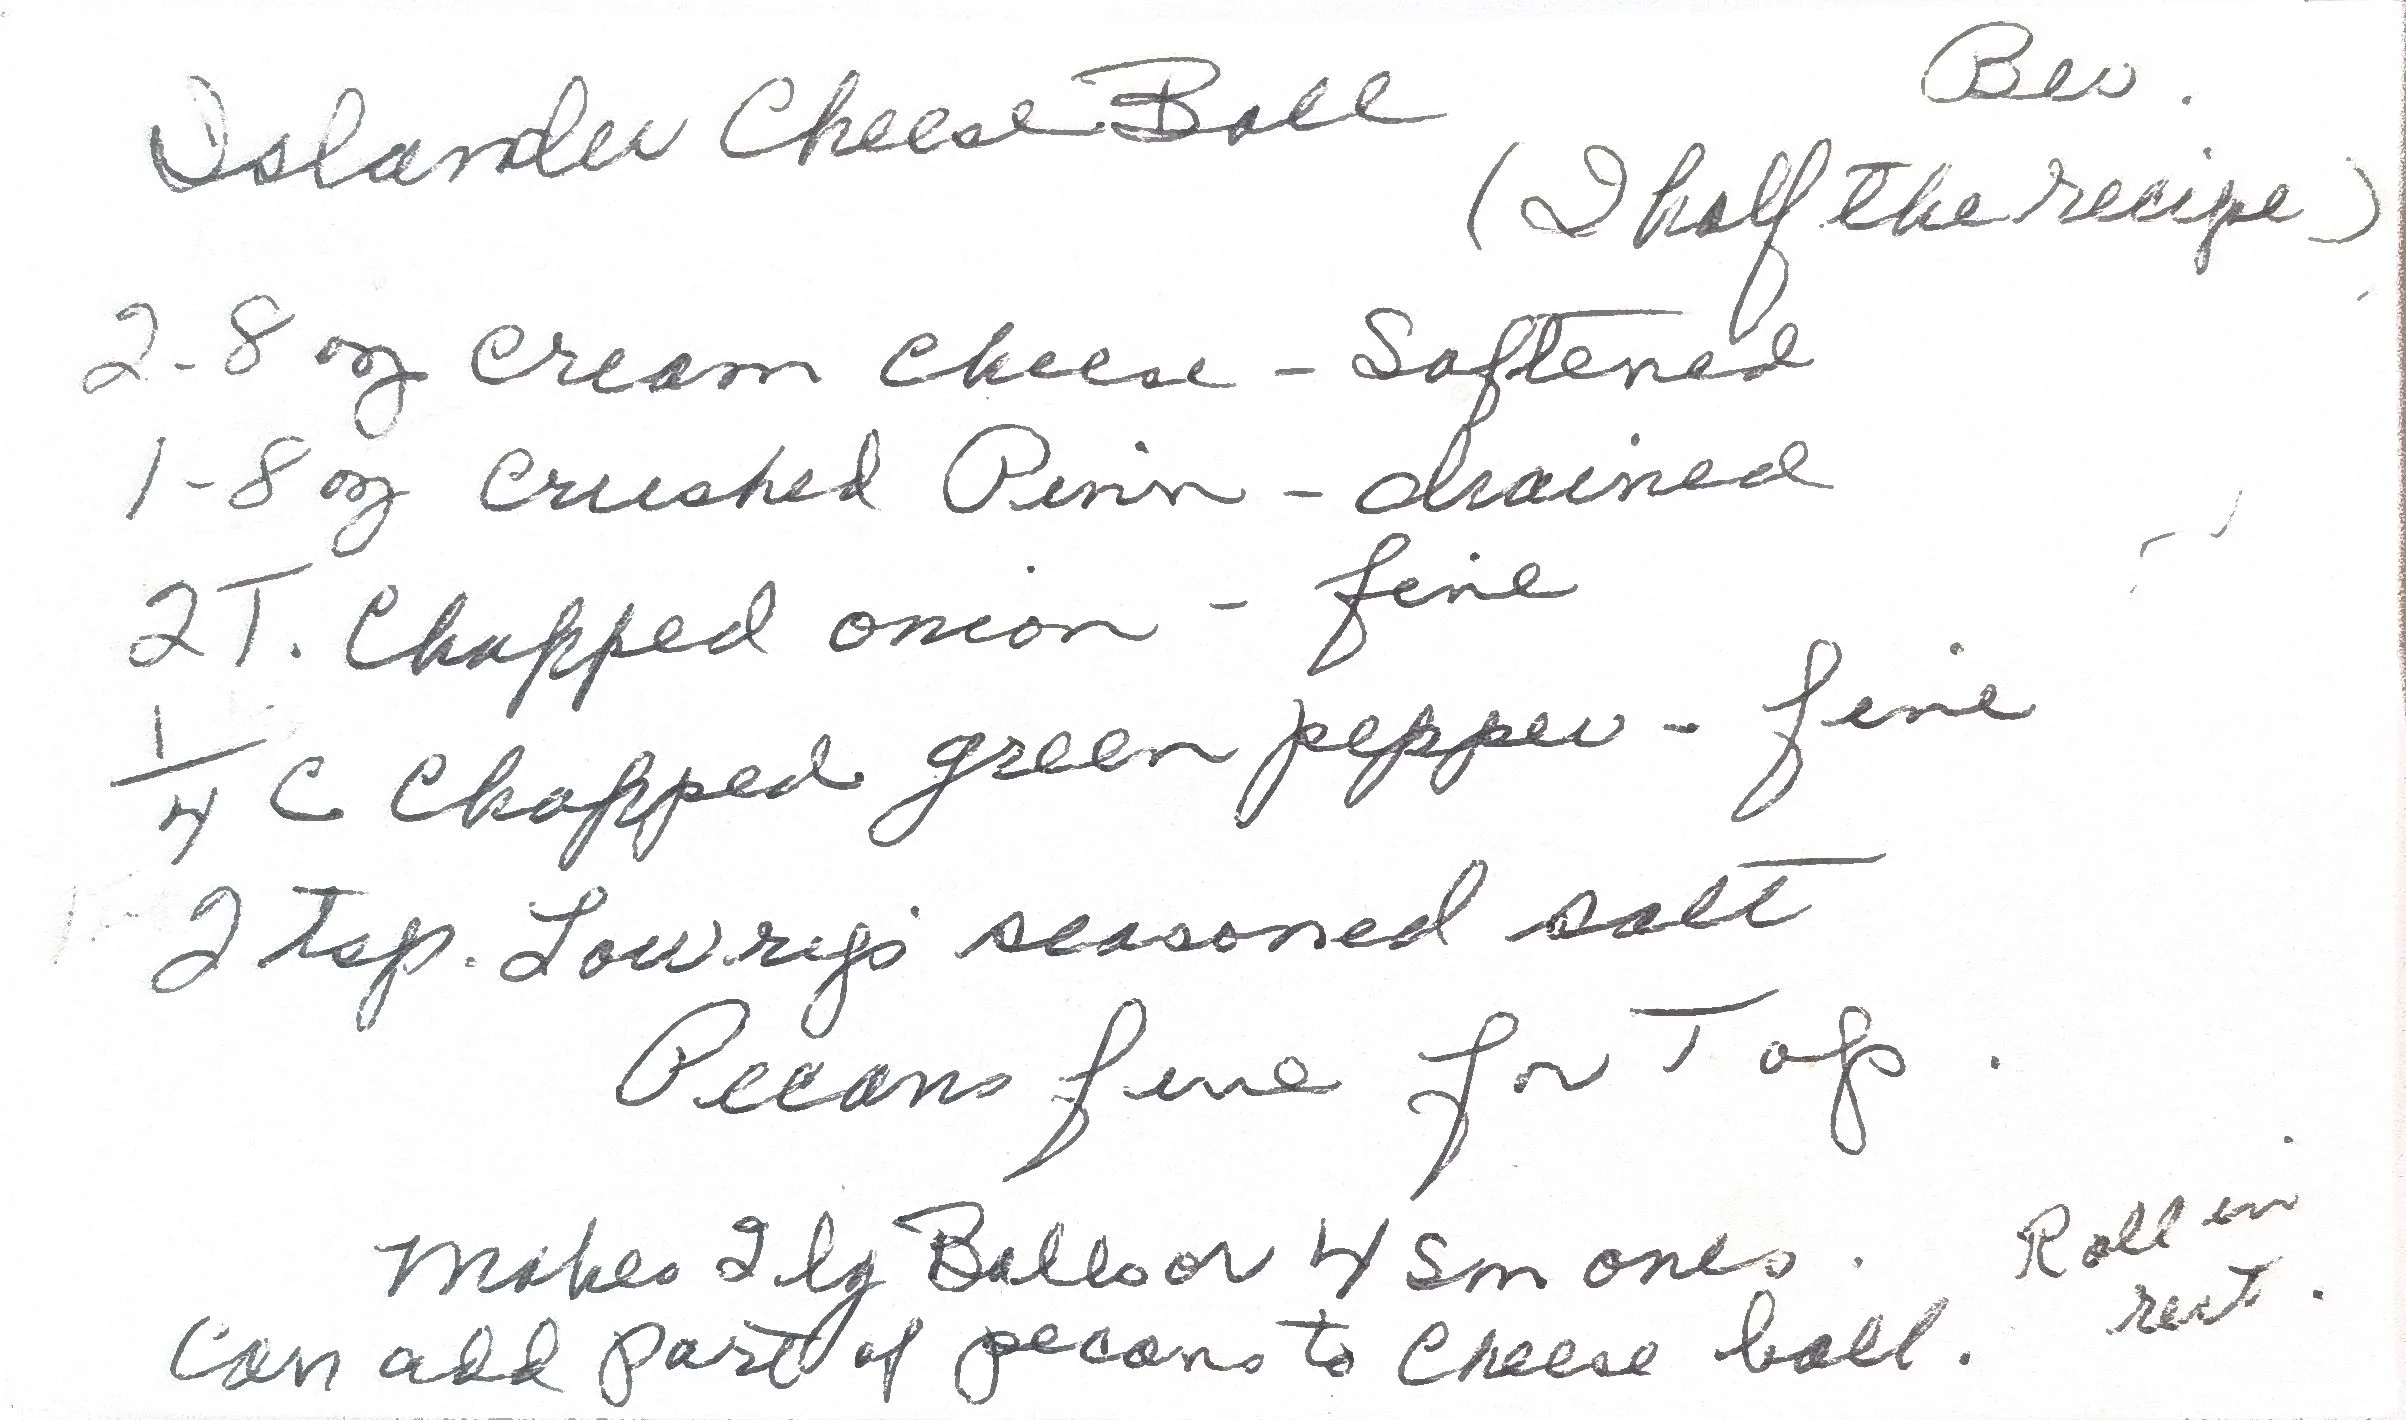 Islander Cheese Ball
Bev.
(I half the recipe)
2-8 oz cream cheese - Softened
1-8 oz crushed Pinn - drained
2T. Chopped onion - fine
1/4 C Chopped green pepper - fine
2 tsp. Lowrys seasoned salt
Pecans fine for Top.
Makes 2 lg Balls or 4 sm ones.
Can add part of pecans to Cheese ball.
Roll in
rest.